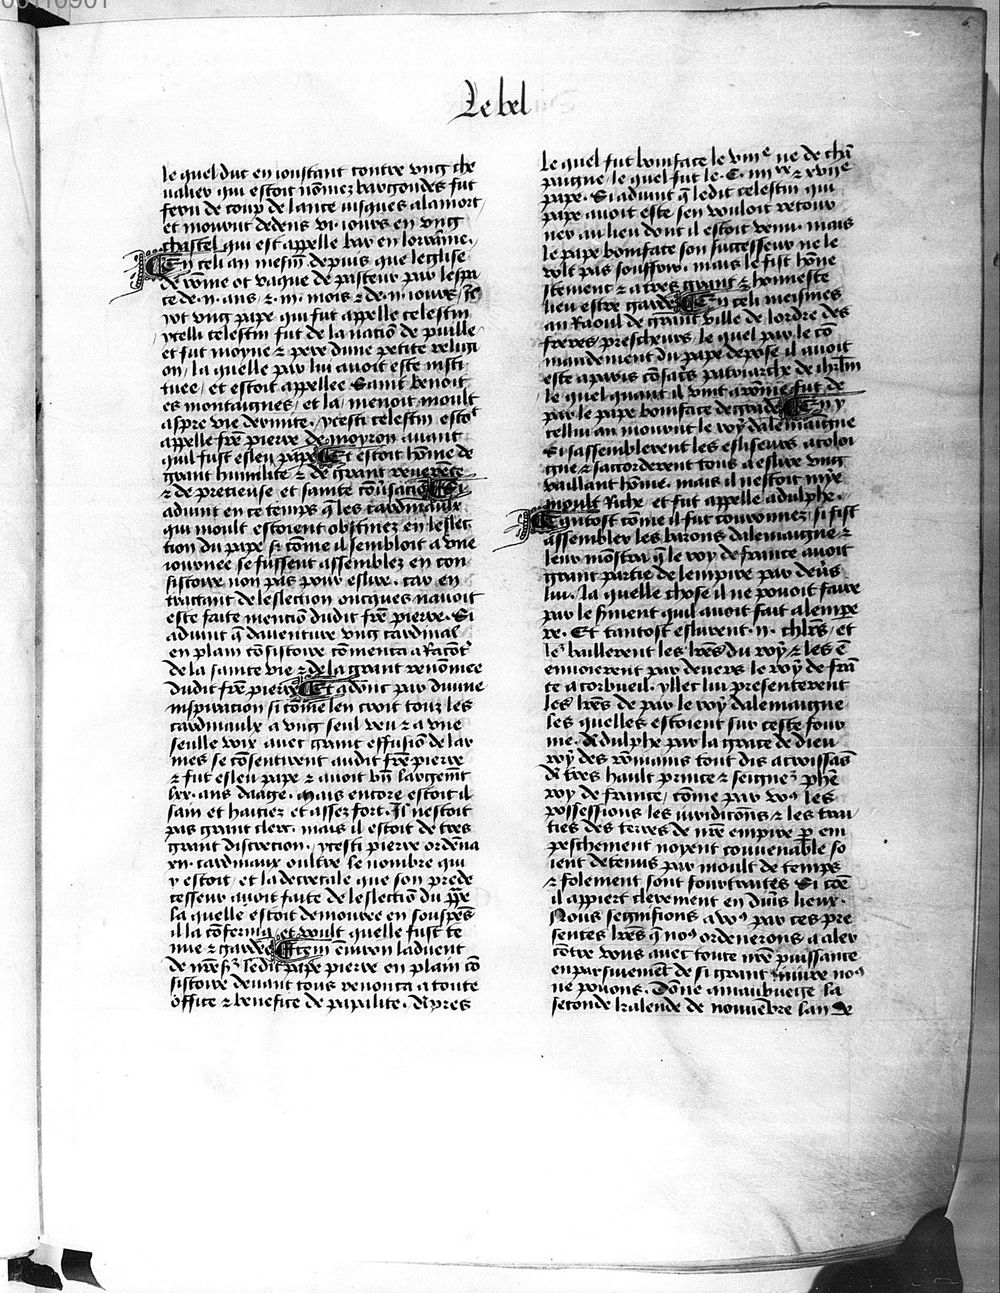 Le bel
le quel duc en ioustant contre vng che
ualier qui estoit nōmez bargondes fut
feru de coup de lance iusques alamort
et mourut dedens vi. iours en vng
chastel qui est appelle bar en lorraine.
En celi an mesm̄ depuis que leglise
de rōme ot vaque de pasteur par lespa
ce de .ii. ans ⁊ .iii. mois ⁊ de .ii. iours /
ot vng pape qui fut appelle celestin
ycelli celestin fut de la natiō de puille
et fut moyne ⁊ pere dune petite religi
on / la quelle par lui auoit este insti
tuee / et estoit appellee Saint benoit
es montaignes / et la menoit moult
aspre vie dermite. ycesti celestin estoͭ
appelle fre᷑ pierre de moyron auant
quil fust esleu pape Et estoit hōme de
grant humilite ⁊ de grant reuerēce
⁊ de precieuse et sainte cōu᷑satiō Si
aduint en ce temps q̄ les cardinaulx
qui moult estoient obstinez en leslec
tion du pape si cōme il sembloit a vne
iournee se fussent assemblez en con
sistoire non pas pour eslire . car en
tractant de leslection oncques nauoit
este faite mentiō dudit fre᷑ pierre. Si
aduint q̄ dauenture vng cardinal
en plain cōsistoire cōmenca a racōt᷑
de la sainte vie ⁊ de la grant renōmee
dudit fre᷑ pierre Et adont par diuine
inspiration si cōme len croit touz les
cardinaulx a vng seul veu ⁊ a vne
seulle voix auec grant effusiō de lar
mes se cōsentirent audit fre᷑ pierre
⁊ fut esleu pape ⁊ auoit bn̄ largem̄t
lxx. ans daage. Mais encore estoit il
sain et haitiez et assez fort. Il nestoit
pas grant clerc. mais il estoit de tres
grant discretion. ycesti pierre ordena
xii. cardinaux oultre le nombre qui
y estoit / et la decretale que son prede
cesseur auoit faite de leslectiō du pp̄e
la quelle estoit demouree en souspēs
il la cōferma et voult quelle fust te
nue ⁊ gardee Item ēuiron laduent
de nr̄e sr̄ ledit pape pierre en plain cō
sistoire deuant tous renonca a toute
office ⁊ benefice de papalite. Apres
le quel fut boniface le viiiᵉ ne de chā
paigne / le quel fut le .C. iiiiˣˣ ⁊ xviiᵉ
pape. Si aduint q̄ ledit celestin qui
pape auoit este sen vouloit retour
ner au lieu dont il estoit venu. mais
le pape boniface son successeur ne le
volt pas souffrir. mais le fist hōne
stement ⁊ a tres grant ⁊ honneste
lieu estre garde En celi meismes
an Raoul de grant ville de lordre des
freres prescheurs le quel par le cō
mandement du pape depose il auoit
este a paris cōsacr̄s patriarche de ihrlm̄
le quel quant il vint a rōme fut de
par le pape boniface degrade En y
cellui an mourut le roy dalemaigne
Si sassemblerent les esliseurs a coloi
gne ⁊ saccorderent tous a eslire vng
vaillant hōme. mais il nestoit mye
moult Riche et fut appelle adulphe.
Tantost cōme il fut couronnez si fist
assembler les barons dalemaigne ⁊
leur mōstra q̄ le roy de france auoit
grant partie de lempire par deu᷑s
lui / la quelle chose il ne pouoit faire
par le s̄iment quil auoit fait alempe
re. Et tantost eslurent .ii. chlr̄s / et
le᷑ baillerent les lr̄es du roy ⁊ les ē
enuoierent par deuers le roy de frā
ce a corbueil. yllec lui presenterent
les lr̄es de par le roy dalemaigne
les quelles estoient sur ceste four
me. Adulphe par la grace de dieu
roy des romains tout dis acroissās
A tres hault prince ⁊ seigne᷑ phē
roy de france / cōme par voꝰ les
possessions les iuridicōns ⁊ les trai
ties des terres de nr̄e empire ꝑ em
peschement noyent conuenable so
ient detenus par moult de temps
⁊ folement sont fourtraites Si cōe
il appiert clerement en diu᷑s lieux.
Nous segnifions a voꝰ par ces pre
sentes lr̄es q̄ noꝰ ordenerons a aler
cōtre vous auec toute nr̄e puissance
en parsiuem̄t de si grant iniure noꝰ
ne pouons. Dōne a maubuege la
seconde kalende de nouuēbre lan de